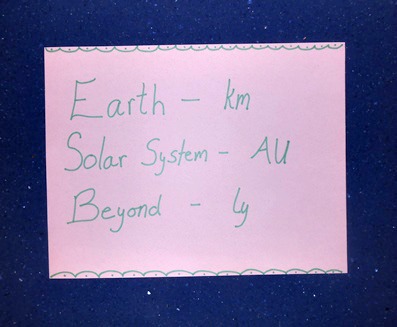 Earth - km
Solar System - AU
Beyond - ly